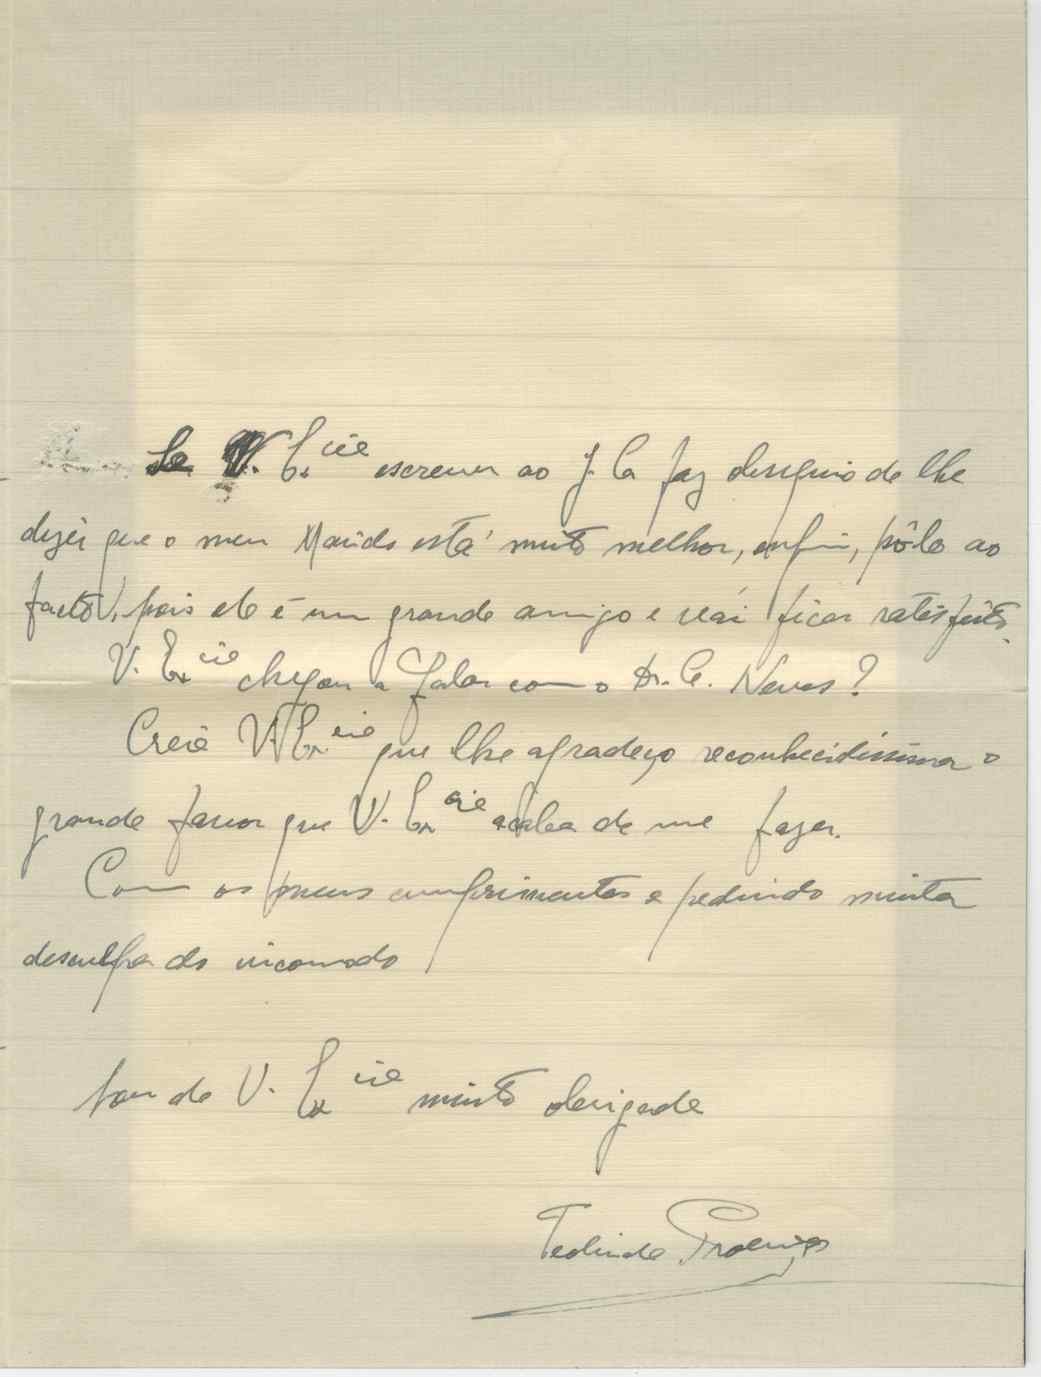 Se V. Ex.cia escrever ao J. Cá faz obséquio de lhe
dizer que o meu Marido está muito melhor, enfim, pô-lo ao
facto, pois ele é um grande amigo e vái ficar satisfeito.
V. Ex.cia chegou a falar com o Dr. C. Neves?
Creia V. Ex.cia que lhe agradeço reconhecidissima o
grande favor que V. Ex.cia acaba de me fazer.
Com os meus cumprimentos e pedindo muita
desculpa do incomodo
Sou de V. Ex.cia muito obrigada
Proença